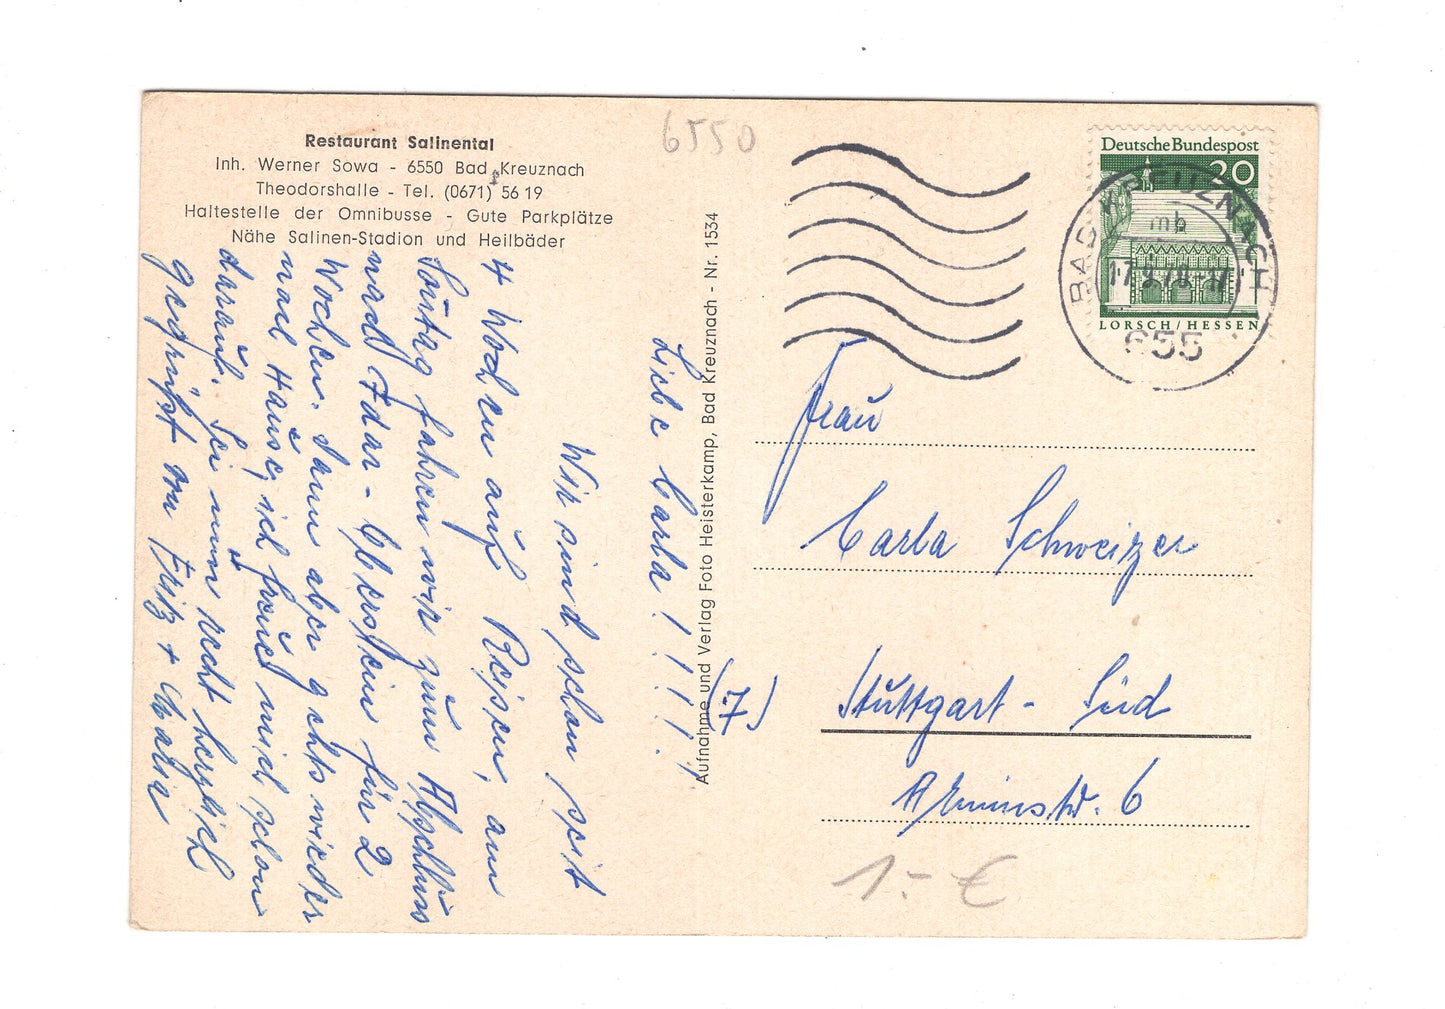 Restaurant Salinental
Inh. Werner Sowa - 6550 Bad Kreuznach
Theodorshalle - Tel. (0671) 56 19
Haltestelle der Omnibusse - Gute Parkplätze
Nähe Salinen-Stadion und Heilbäder
6550
Liebe Carla ! ! ! ! !
Wir sind schon seit
4 Wochen auf Reisen, am
Sontag fahren wir zum Abschluss
nach Idar-Oberstein für 2
Wochen. Dann aber gehts wieder
nach Hause, ich freue mich schon
darauf. Sei nun recht herzlich
gegrüßt von Fritz + Maria
Aufnahme und Verlag Foto Heisterkamp, Bad Kreuznach - Nr. 1534
Deutsche Bundespost
20
LORSCH/HESSEN
BAD KREUZNACH
mb
655
Frau
Carla Schweizer
(7) Stuttgart - Süd
Arminstr. 6
1.- €